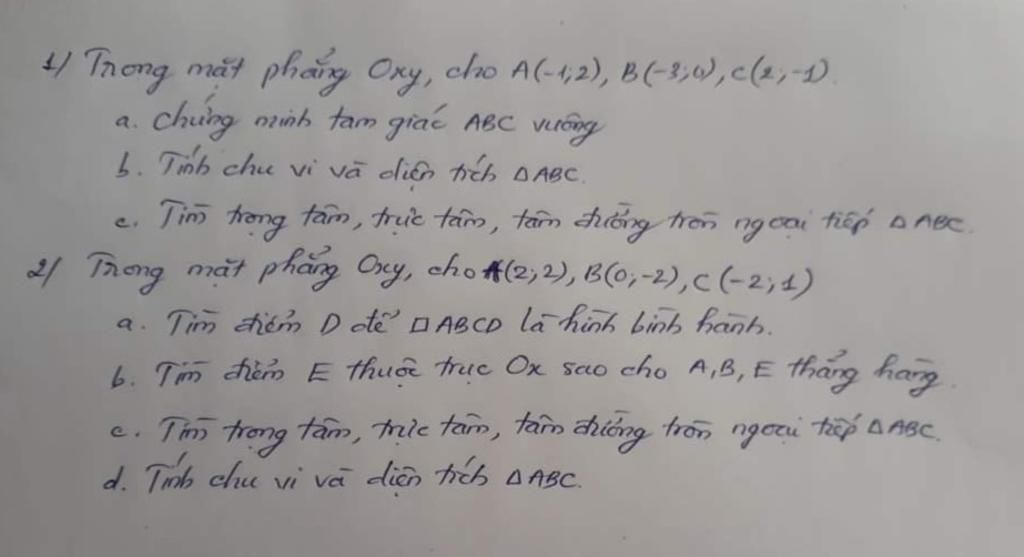 1/ Trong mặt phẳng Oxy, cho A(-1;2), B(-3;0), C(2;-1).
a. Chứng minh tam giác ABC vuông
b. Tính chu vi và diện tích △ABC.
c. Tìm trọng tâm, trực tâm, tâm đường tròn ngoại tiếp △ABC.
2/ Trong mặt phẳng Oxy, cho A(2;2), B(0;-2), C(-2;1)
a. Tìm điểm D để □ABCD là hình bình hành.
b. Tìm điểm E thuộc trục Ox sao cho A,B,E thẳng hàng.
c. Tìm trọng tâm, trực tâm, tâm đường tròn ngoại tiếp △ABC.
d. Tính chu vi và diện tích △ABC.